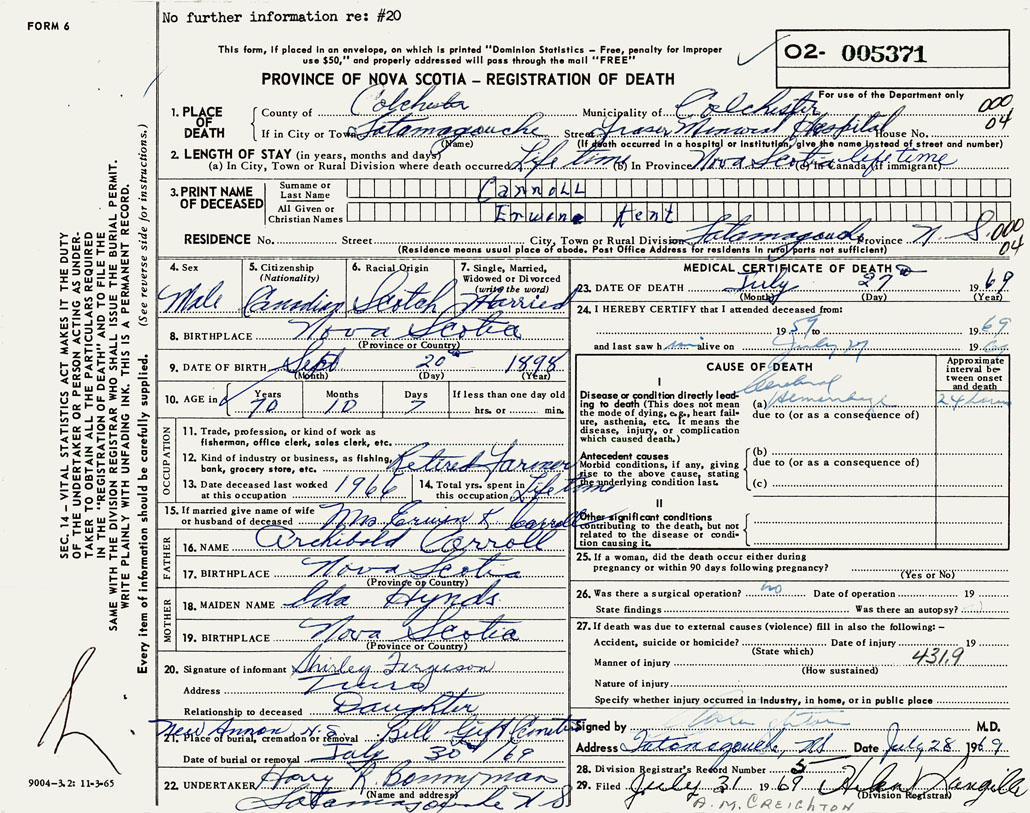 FORM 6
No further information re: #20
This form, if placed in an envelope, on which is printed "Dominion Statistics – Free, penalty for improper
use $50," and properly addressed will pass through the mail "FREE"
O2- 005371
PROVINCE OF NOVA SCOTIA – REGISTRATION OF DEATH
For use of the Department only
1. PLACE OF DEATH County of Colchester Municipality of Colchester 000 04
If in City or Town Tatamagouche Street Fraser Memorial Hospital House No.
(Name) (If death occurred in a hospital or institution, give the name instead of street and number)
2. LENGTH OF STAY (in years, months and days)
(a) In City, Town or Rural Division where death occurred Life time (b) In Province Nova Scotia (c) In Canada (if immigrant) lifetime
3. PRINT NAME OF DECEASED Surname or Last Name Carroll
All Given or Christian Names Erwine Kent
RESIDENCE No. Street City, Town or Rural Division Tatamagouche Province N. S. 000 04
(Residence means usual place of abode. Post Office Address for residents in rural parts not sufficient)
4. Sex Male
5. Citizenship (Nationality) Canadian
6. Racial Origin Scotch
7. Single, Married, Widowed or Divorced (write the word) Married
8. BIRTHPLACE Nova Scotia
(Province or Country)
9. DATE OF BIRTH Sept 20th 1898
(Month) (Day) (Year)
10. AGE in Years 70 Months 10 Days 7 If less than one day old hrs. or min.
OCCUPATION
11. Trade, profession, or kind of work as
fisherman, office clerk, sales clerk, etc.
12. Kind of industry or business, as fishing,
bank, grocery store, etc. Retired Farmer
13. Date deceased last worked at this occupation 1966
14. Total yrs. spent in this occupation Life time
15. If married give name of wife or husband of deceased Mrs Erwin K Carroll
FATHER
16. NAME Archibald Carroll
17. BIRTHPLACE Nova Scotia
(Province or Country)
MOTHER
18. MAIDEN NAME Ida Hynds
19. BIRTHPLACE Nova Scotia
(Province or Country)
20. Signature of informant Shirley Ferguson
Address Truro
Relationship to deceased Daughter
New Annan N.S
21. Place of burial, cremation or removal Bill
Date of burial or removal July 30 /69
22. UNDERTAKER Harry R Bonnyman
(Name and address)
Tatamagouche N S
MEDICAL CERTIFICATE OF DEATH
23. DATE OF DEATH July 27 1969
(Month) (Day) (Year)
24. I HEREBY CERTIFY that I attended deceased from:
19 59 to 1969
and last saw him alive on July 27
CAUSE OF DEATH
Approximate interval between onset and death
I
Disease or condition directly leading to death (This does not mean the mode of dying, e.g., heart failure, asthenia, etc. It means the disease, injury, or complication which caused death.)
(a) Cerebral Hemorrhage 24 hours
due to (or as a consequence of)
Antecedent causes
Morbid conditions, if any, giving rise to the above cause, stating the underlying condition last.
(b)
due to (or as a consequence of)
(c)
II
Other significant conditions
contributing to the death, but not related to the disease or condition causing it.
25. If a woman, did the death occur either during
pregnancy or within 90 days following pregnancy?
(Yes or No)
26. Was there a surgical operation? no Date of operation 19
State findings Was there an autopsy?
27. If death was due to external causes (violence) fill in also the following: –
Accident, suicide or homicide? Date of injury 19
(State which)
Manner of injury 431.9
(How sustained)
Nature of injury
Specify whether injury occurred in industry, in home, or in public place
Signed by M.D.
Address Tatamagouche, NS Date July 28 1969
28. Division Registrar's Record Number 5
29. Filed July 31 1969 Helen Langille
(Division Registrar)
A. M. CREIGHTON
SEC. 14 – VITAL STATISTICS ACT MAKES IT THE DUTY
OF THE UNDERTAKER OR PERSON ACTING AS UNDER-
TAKER TO OBTAIN ALL THE PARTICULARS REQUIRED
IN THE "REGISTRATION OF DEATH" AND TO FILE THE
SAME WITH THE DIVISION REGISTRAR WHO SHALL ISSUE THE BURIAL PERMIT.
WRITE PLAINLY WITH UNFADING INK. THIS IS A PERMANENT RECORD.
Every item of information should be carefully supplied. (See reverse side for instructions.)
9004-3.2: 11-3-65